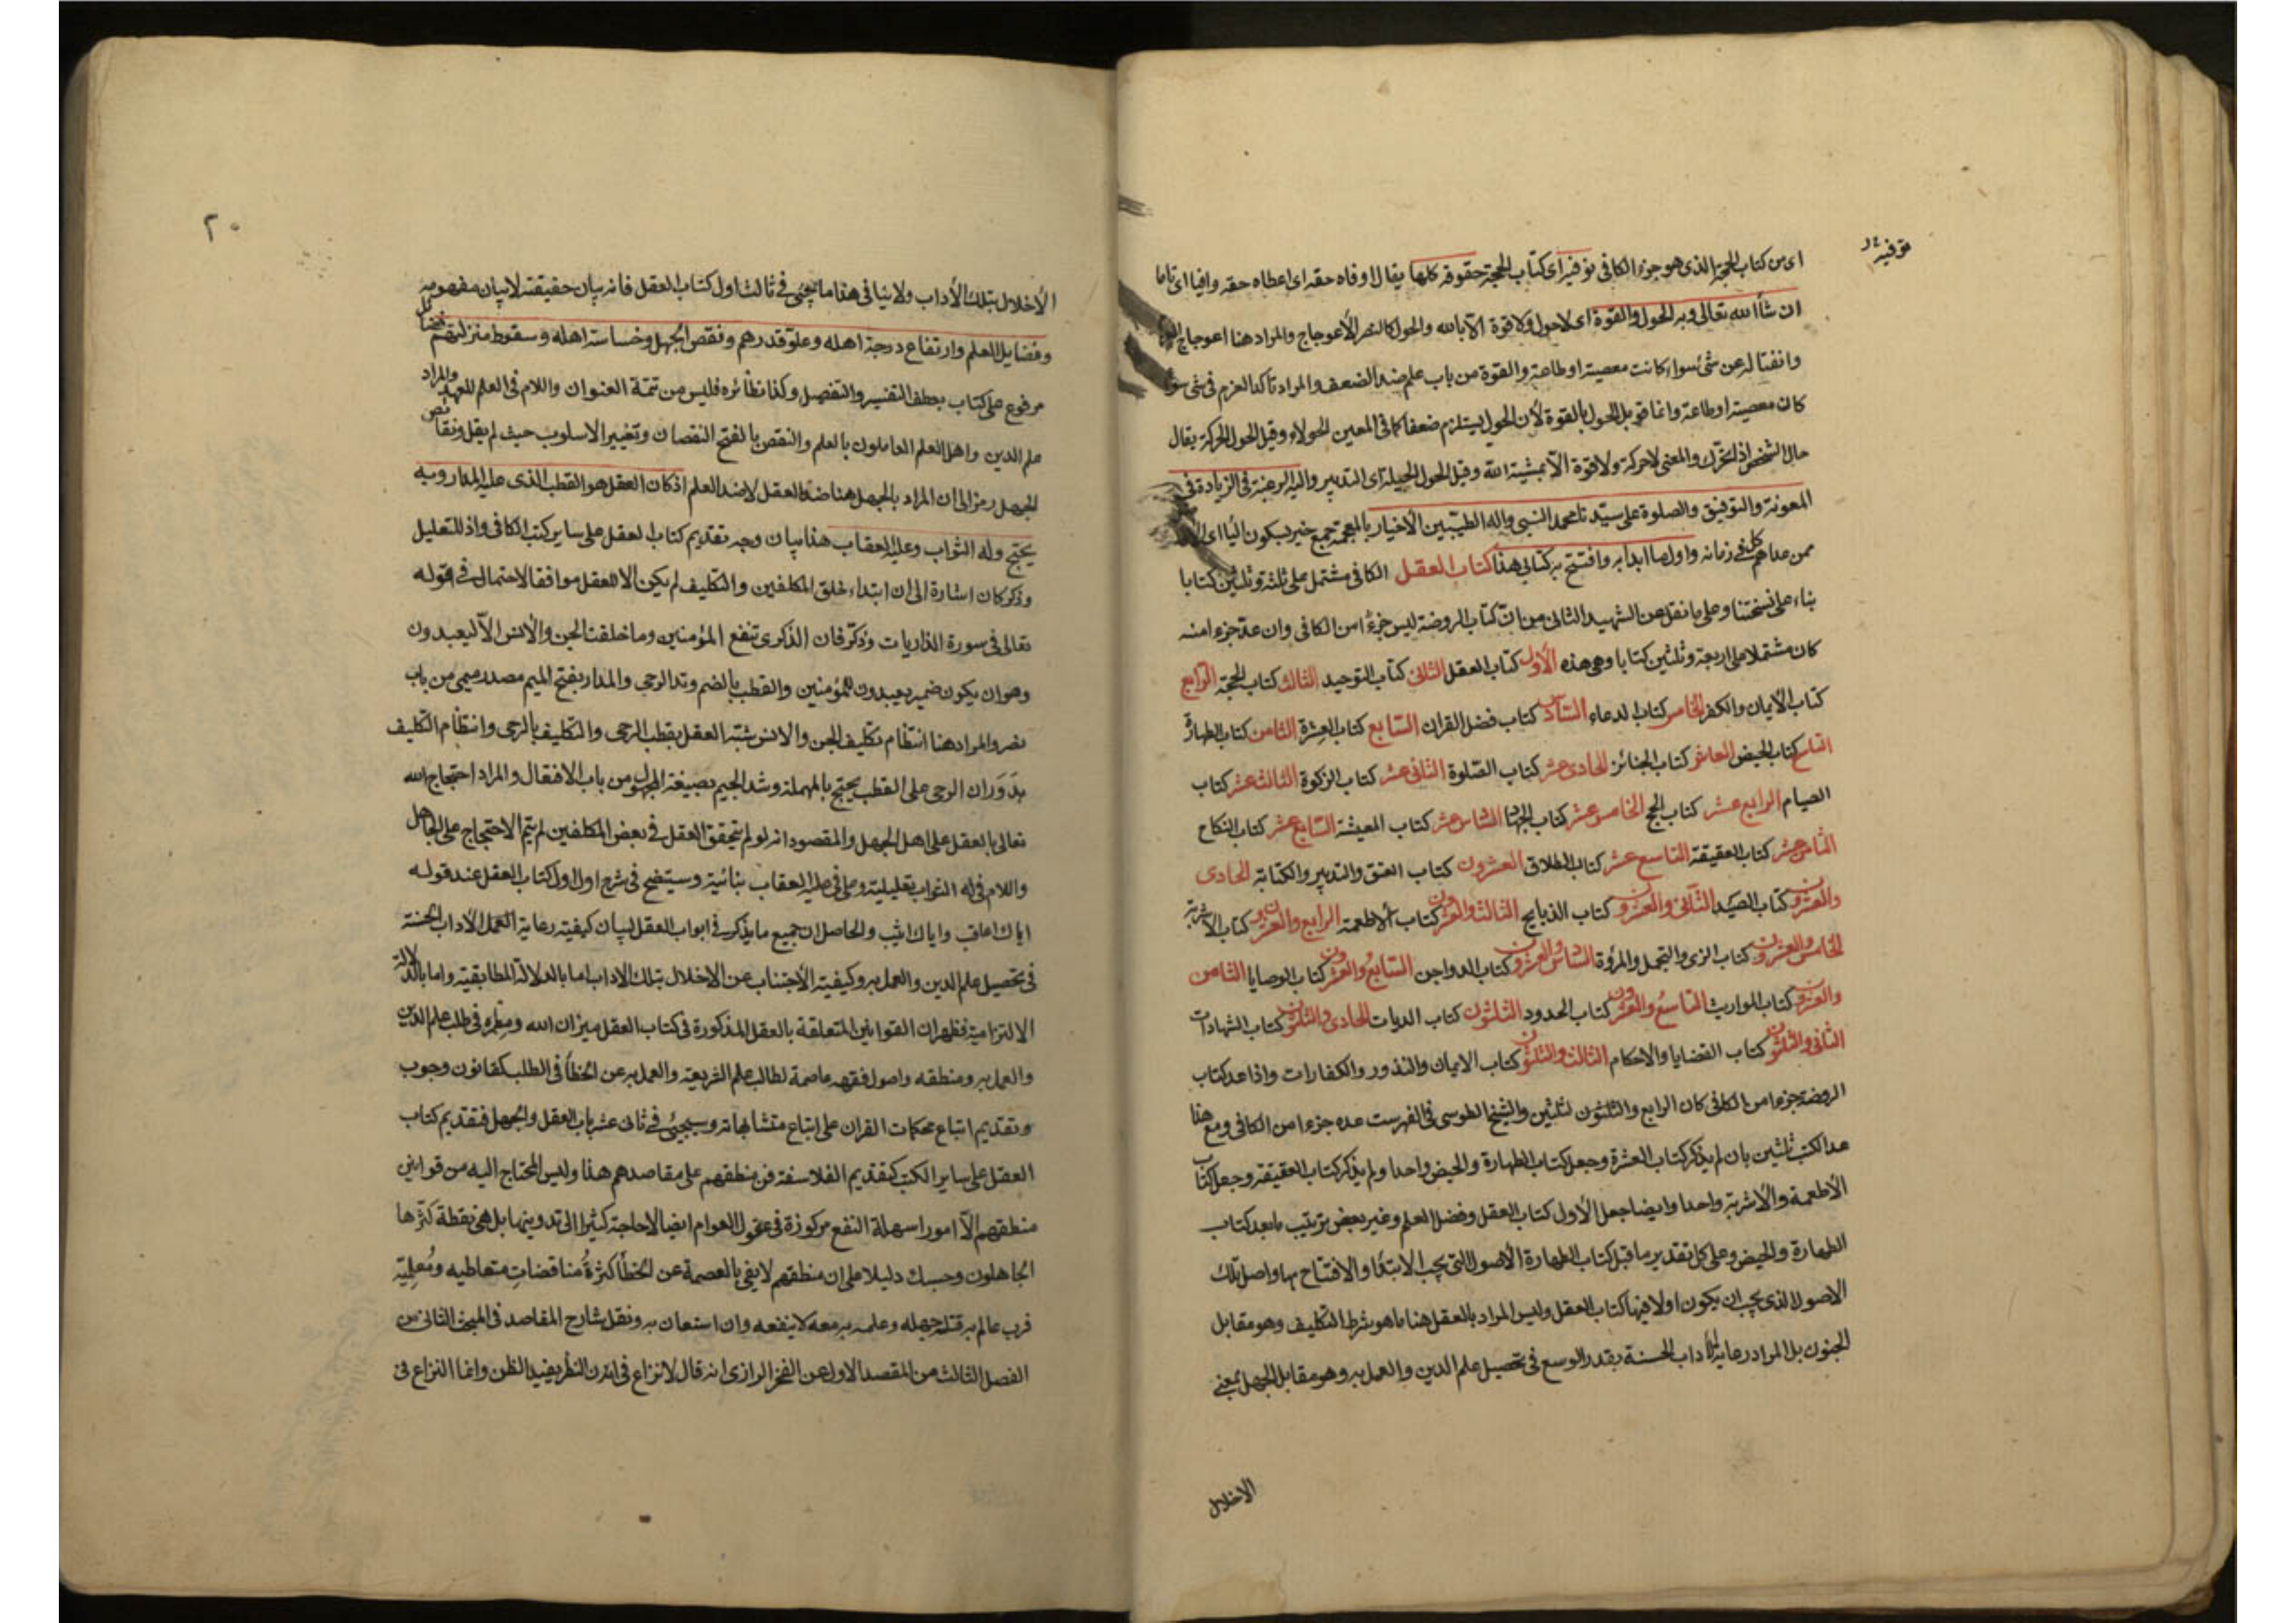 توفيه
اى من كتاب الحجة الذى هو جزء الكافى نوفيه اى كتاب الحجة حقوقه كلها يقال اوفاه حقه اى اعطاه حقه وافيا اى تاما
ان شاء الله تعالى وبه الحول والقوة اى لا حول ولا قوة الا بالله والحول كالنصر الاعوجاج والمراد هنا اعوجاج
وانفتاله عن شئ سواء كانت معصية او طاعة والقوة من باب علم ضد الضعف والمراد تأكد العزم فى شئ سواء
كان معصية او طاعة وانما قوبل الحول بالقوة لأن الحول يستلزم ضعفا كما فى المعين الحولاء وقيل الحول الحركة يقال
حال الشخص اذا تحرك والمعنى لا حركة ولا قوة الا بمشية الله وقيل الحول الحيلة اى التدبير واليه الرغبة فى الزيادة فى
المعونة والتوفيق والصلوة على سيدنا محمد النبى واله الطيبين الأخيار بالمعجمة جمع خير بسكون اليا اى
ممن عداهم كل فى زمانه واول ما ابدأ به وافتتح به كتابى هذا كتاب العقل الكافى مشتمل على ثلثة وثلثين كتابا
بناء على نسختنا وعلى ما نقل عن الشهيد الثانى من ان كتاب الروضة ليس جزءا من الكافى وان عد جزءا منه
كان مشتملا على اربعة وثلثين كتابا وهى هذه الأول كتاب العقل الثانى كتاب التوحيد الثالث كتاب الحجة الرابع
كتاب الأيمان والكفر الخامس كتاب الدعاء السادس كتاب فضل القران السابع كتاب العشرة الثامن كتاب الطهارة
التاسع كتاب الحيض العاشر كتاب الجنائز الحادى عشر كتاب الصلوة الثانى عشر كتاب الزكوة الثالث عشر كتاب
الصيام الرابع عشر كتاب الحج الخامس عشر كتاب الجهاد السادس عشر كتاب المعيشة السابع عشر كتاب النكاح
الثامن عشر كتاب العقيقة التاسع عشر كتاب الطلاق العشرون كتاب العتق والتدبير والكتابة الحادى
والعشرون كتاب الصيد الثانى والعشرون كتاب الذبايح الثالث والعشرون كتاب الأطعمة الرابع والعشرون كتاب الأشربة
الخامس والعشرون كتاب الزى والتجمل والمروة السادس والعشرون كتاب الدواجن السابع والعشرون كتاب الوصايا الثامن
والعشرون كتاب المواريث التاسع والعشرون كتاب الحدود الثلثون كتاب الديات الحادى والثلثون كتاب الشهادات
الثانى والثلثون كتاب القضايا والاحكام الثالث والثلثون كتاب الايمان والنذور والكفارات واذا عد كتاب
الروضة جزءا من الكافى كان الرابع والثلثون لثلثين والشيخ الطوسى فى الفهرست عده جزءا من الكافى ومع هذا
عد الكتب ثلثين بان لم يذكر كتاب العشرة وجعل كتاب الطهارة والحيض واحدا ولم يذكر كتاب العقيقة وجعل كتاب
الأطعمة والأشربة واحدا وايضا جعل الأول كتاب العقل وفضل العلم وغير بعض ترتيب ما بعد كتاب
الطهارة والحيض وعلى كل تقدير ما قبل كتاب الطهارة الأصول التى يجب الابتدأ والافتتاح بها واصل تلك
الاصول الذى يجب ان يكون اولا فيها كتاب العقل وليس المراد بالعقل هنا ما هو شرط التكليف وهو مقابل
الجنون بل المراد رعاية الأداب الحسنة بقدر الوسع فى تحصيل علم الدين والعمل به وهو مقابل الجهل بمعنى
الاخلال
٢٠
الأخلال بتلك الأداب ولا ينافى هذا ما يجئ فى ثالث اول كتاب العقل فانه بيان حقيقته لا بيان مفهومه
وفضايل العلم وارتفاع درجة اهله وعلو قدرهم ونقص الجهل وخساسة اهله وسقوط منزلتهم فضائل
مرفوع على كتاب بعطف التفسير والتفصيل وكذا نظائره فليس من تتمة العنوان واللام فى العلم للعهد والمراد
علم الدين واهل العلم العاملون بالعلم والنقص بالفتح النقصان وتغيير الاسلوب حيث لم يقل ونقائص
الجهل رمز الى ان المراد بالجهل هنا ضد العقل لا ضد العلم اذ كان العقل هو القطب الذى عليه المدار وبه
يحتج وله الثواب وعليه العقاب هذا بيان وجه تقديم كتاب العقل على ساير كتب الكافى واذ للتعليل
وذكر كان اشارة الى ان ابتداء خلق المكلفين والتكليف لم يكن الا للعقل موافقا لاحتمال فى قوله
تعالى فى سورة الذاريات وذكر فان الذكرى تنفع المؤمنين وما خلقت الجن والأنس الا ليعبدون
وهو ان يكون ضمير يعبدون للمؤمنين والقطب بالضم وتد الرحى والمدار بفتح الميم مصدر ميمى من باب
نصر والمراد هنا انتظام تكليف الجن والانس شبه العقل بقطب الرحى والتكليف بالرحى وانتظام التكليف
بدوران الرحى على القطب يحتج بالمهملة وشد الجيم بصيغة المجهول من باب الافتعال والمراد احتجاج الله
تعالى بالعقل على اهل الجهل والمقصود انه لو لم يتحقق العقل فى بعض المكلفين لم يتم الاحتجاج على الجاهل
واللام فى له الثواب تعليلية وعلى فى عليه العقاب بنائية وسيتضح فى شرح اول اول كتاب العقل عند قوله
اياك اعاقب واياك اثيب والحاصل ان جميع ما يذكر فى ابواب العقل لبيان كيفية رعاية العمل الأداب الحسنة
فى تحصيل علم الدين والعمل به وكيفية الأجتناب عن الاخلال بتلك الاداب اما بالدلالة المطابقية واما بالدلالة
الالتزامية فظهر ان القوانين المتعلقة بالعقل المذكورة فى كتاب العقل ميزان الله فى طلب علم الدين
والعمل به ومنطقه واصول فقهه عاصمة لطالب علم الشريعة والعمل به عن الخطأ فى الطلب كقانون وجوب
وتقديم اتباع محكمات القران على اتباع متشابهاته وسيجئ فى ثانى عشر باب العقل والجهل فتقديم كتاب
العقل على ساير الكتب كتقديم الفلاسفة فن منطقهم على مقاصدهم هذا وليس المحتاج اليه من قوانين
منطقهم الا امورا سهلة النفع مركوزة فى عقول العوام ايضا لا حاجة كثيرا الى تدوينها بل هى نقطة كثرها
الجاهلون وحسبك دليلا على ان منطقهم لا يفى بالعصمة عن الخطأ كثرة مناقضات متعاطيه ومعلميه
فرب عالم به قتله جهله وعلمه به معه لا ينفعه وان استعان به ونقل شارح المقاصد فى المبحث الثانى من
الفصل الثالث من المقصد الاول عن الفخر الرازى انه قال لا نزاع فى ان النظر يفيد الظن وانما النزاع فى